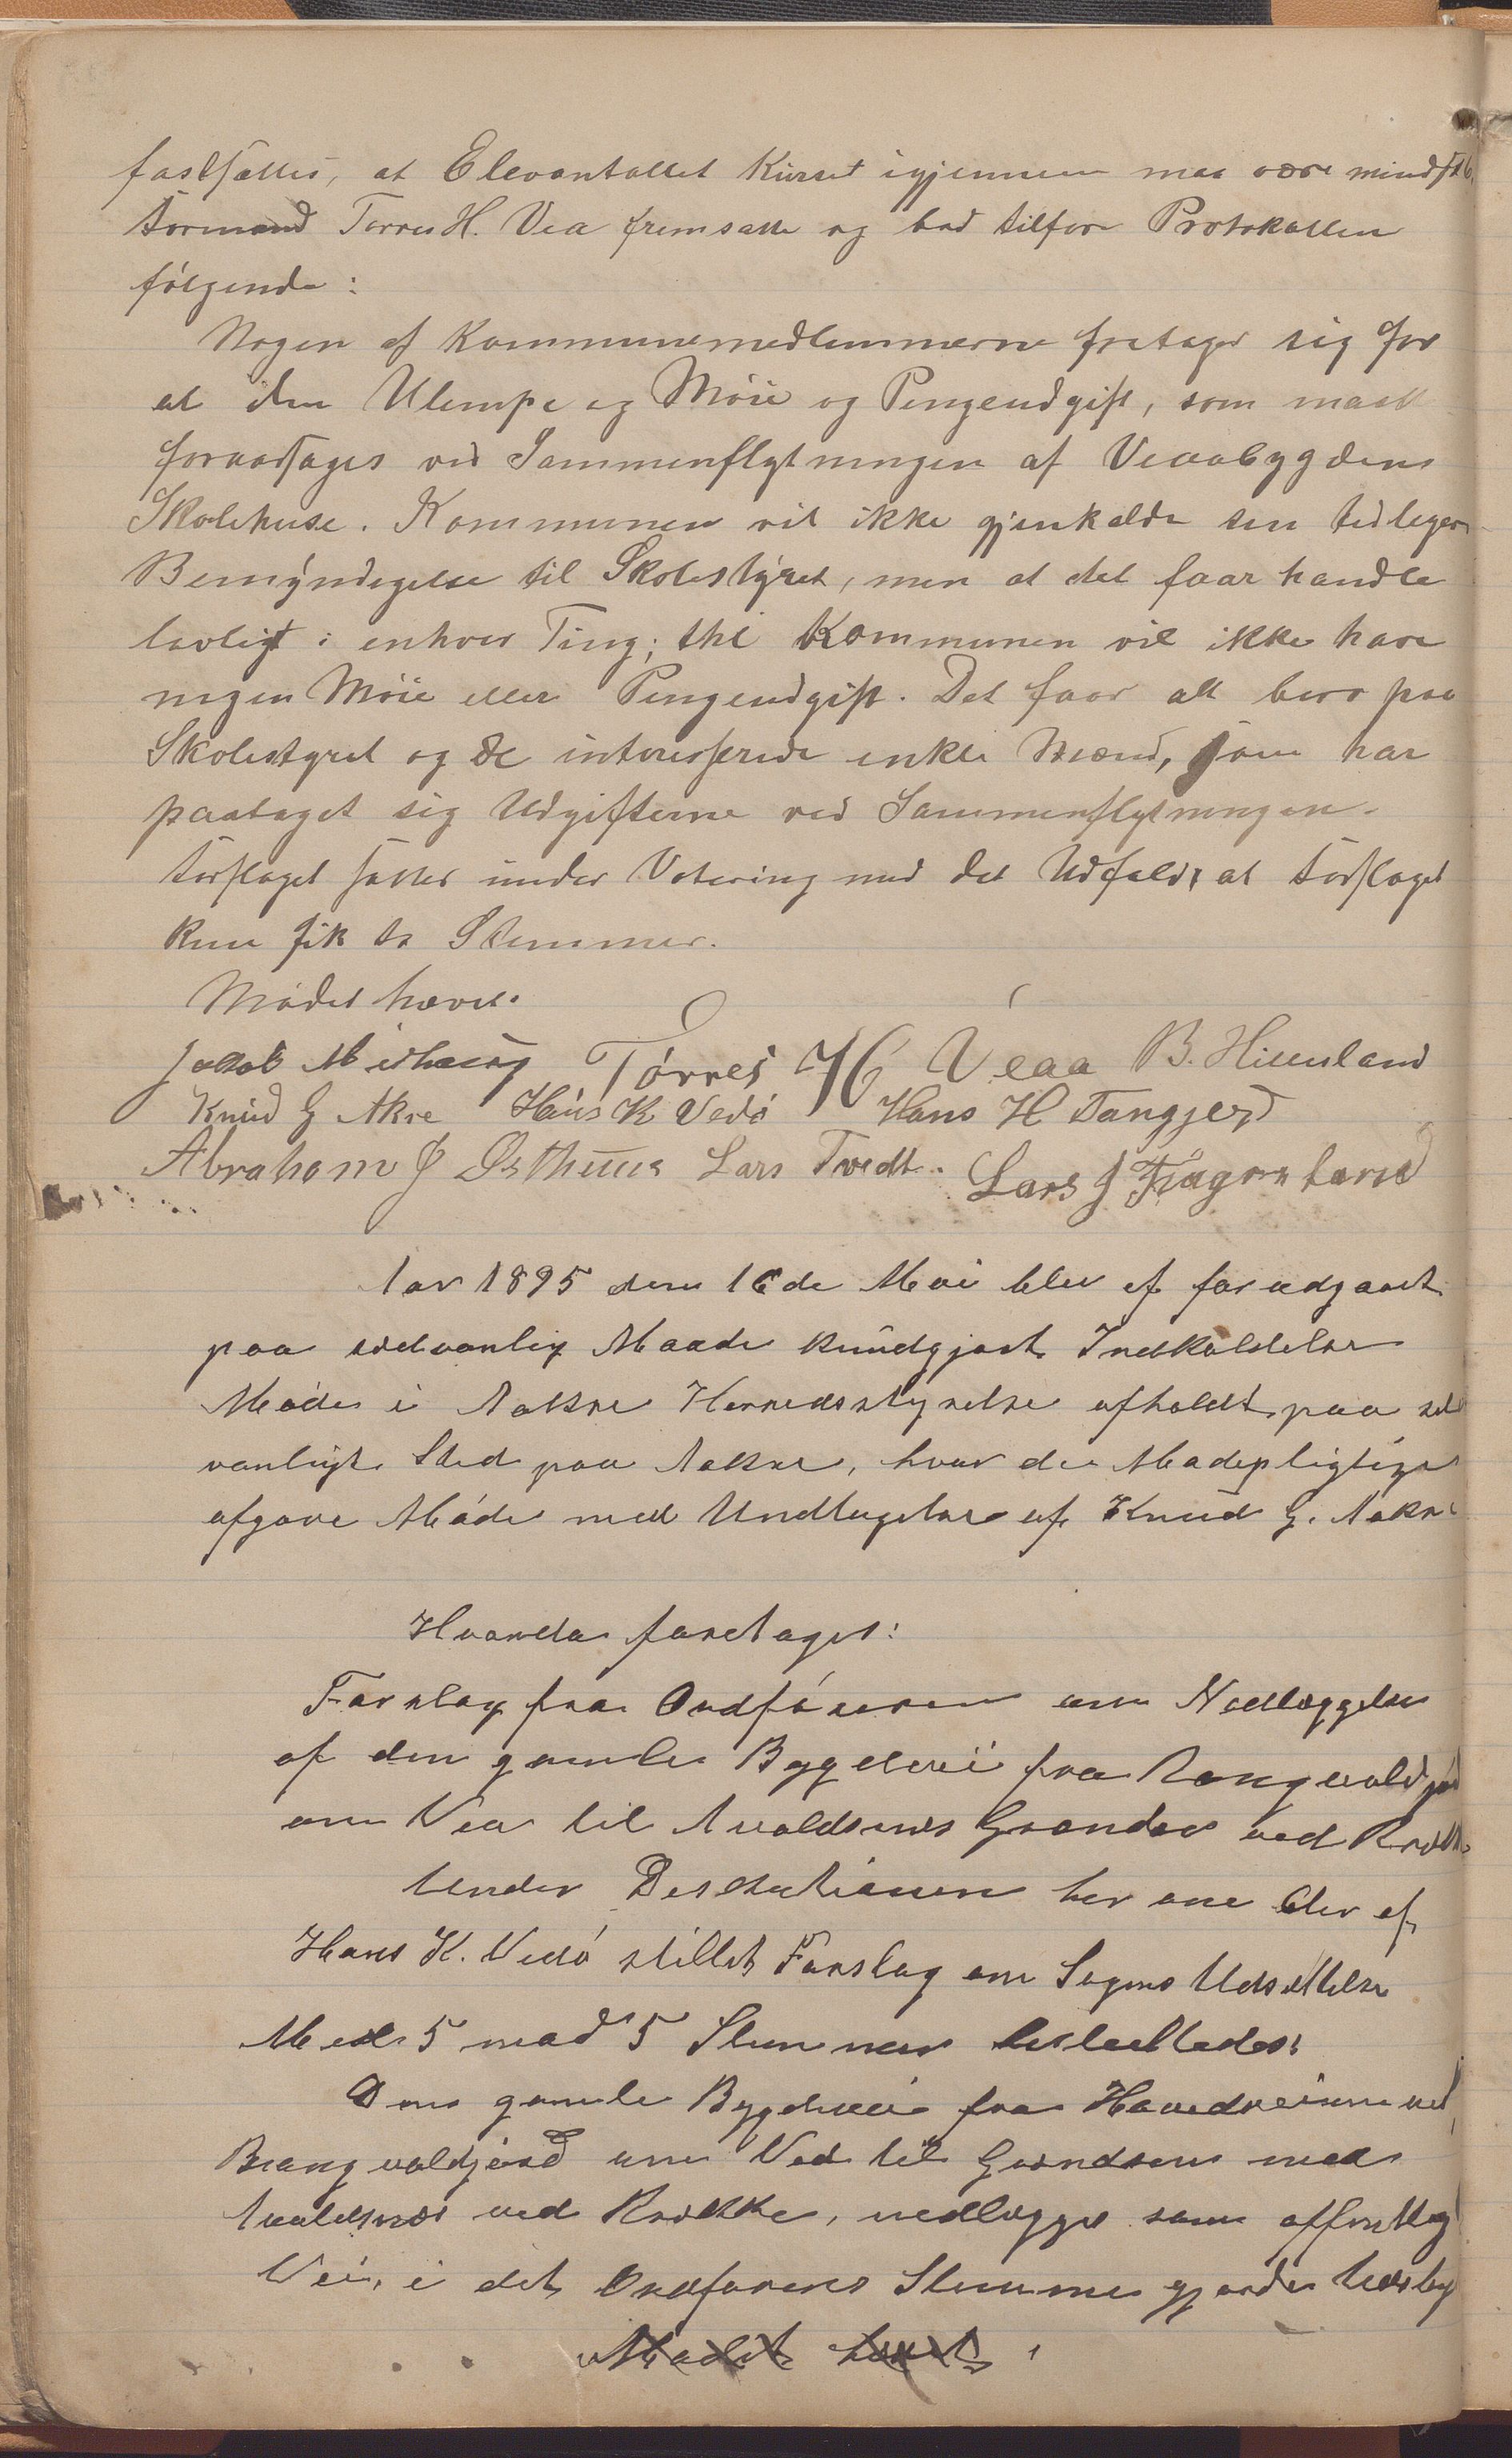 fastsættes, at Elevantallet Kurset igjennem maa være mindst 16.
Formand Torres H. Vea fremsatte og bad tilføre Protokollen
følgende:
Nogen af Kommunemedlemmerne fretager sig for
at den Ulempe og Møie og Pengeudgift, som maatte
foraarsages ved Sammenflytningen af Veaabygdens
Skolehuse. Kommunen vil ikke gjenkalde sin tidligere
Bemyndigelse til Skolestyret, men at det faar handle
lovligt i enhver Ting; thi Kommunen vil ikke have
nogen Møie eller Pengeudgift. Det faar alt bero paa
Skolestyret og de interesserede enkle Mænd, som har
paataget sig Udgifterne ved Sammenflytningen.
Forslaget sattes under Votering med det Udfald, at Forslaget
kun fik to Stemmer.
Mødet hævet.
Jakob Midhaug Törres H Veaa B. Hillesland
Knud G Akre Hans K Vedø Hans H Tangjerd
Abraham J Østhuus Lars Tvedt. Lars J
Aar 1895 den 16de Mai blev ef. forudgaaet
paa sedvanlig Maade kundgjort Indkaldelse
Møde i Aakre Herredsstyrelse afholdt paa sed
vanligt Sted paa Aakre, hvor de Mødepligtige
afgave Møde med Undtagelse af Knud G. Aakre
Hvorda foretages:
Forslag fra Ordføreren om Nedlæggelse
af den gamle Bygdevei fra Rangvaldjød
om Vea til Avaldsnes Grændse ved Røkke
Under Deskutionen her om blev af
Hans K. Vedø stillet Forslag om Sagens Udsættelse
Med 5 mod 5 Stemmer besluttedes:
Den gamle Bygdevei fra Hovedveien ved
Rangvaldjød om Vea til Grændsen med
Avaldsnes ved Røkke, nedlægges som offentlig
Vei, i det Ordførerens Stemme gjorde Udslag
Mødet hævet.